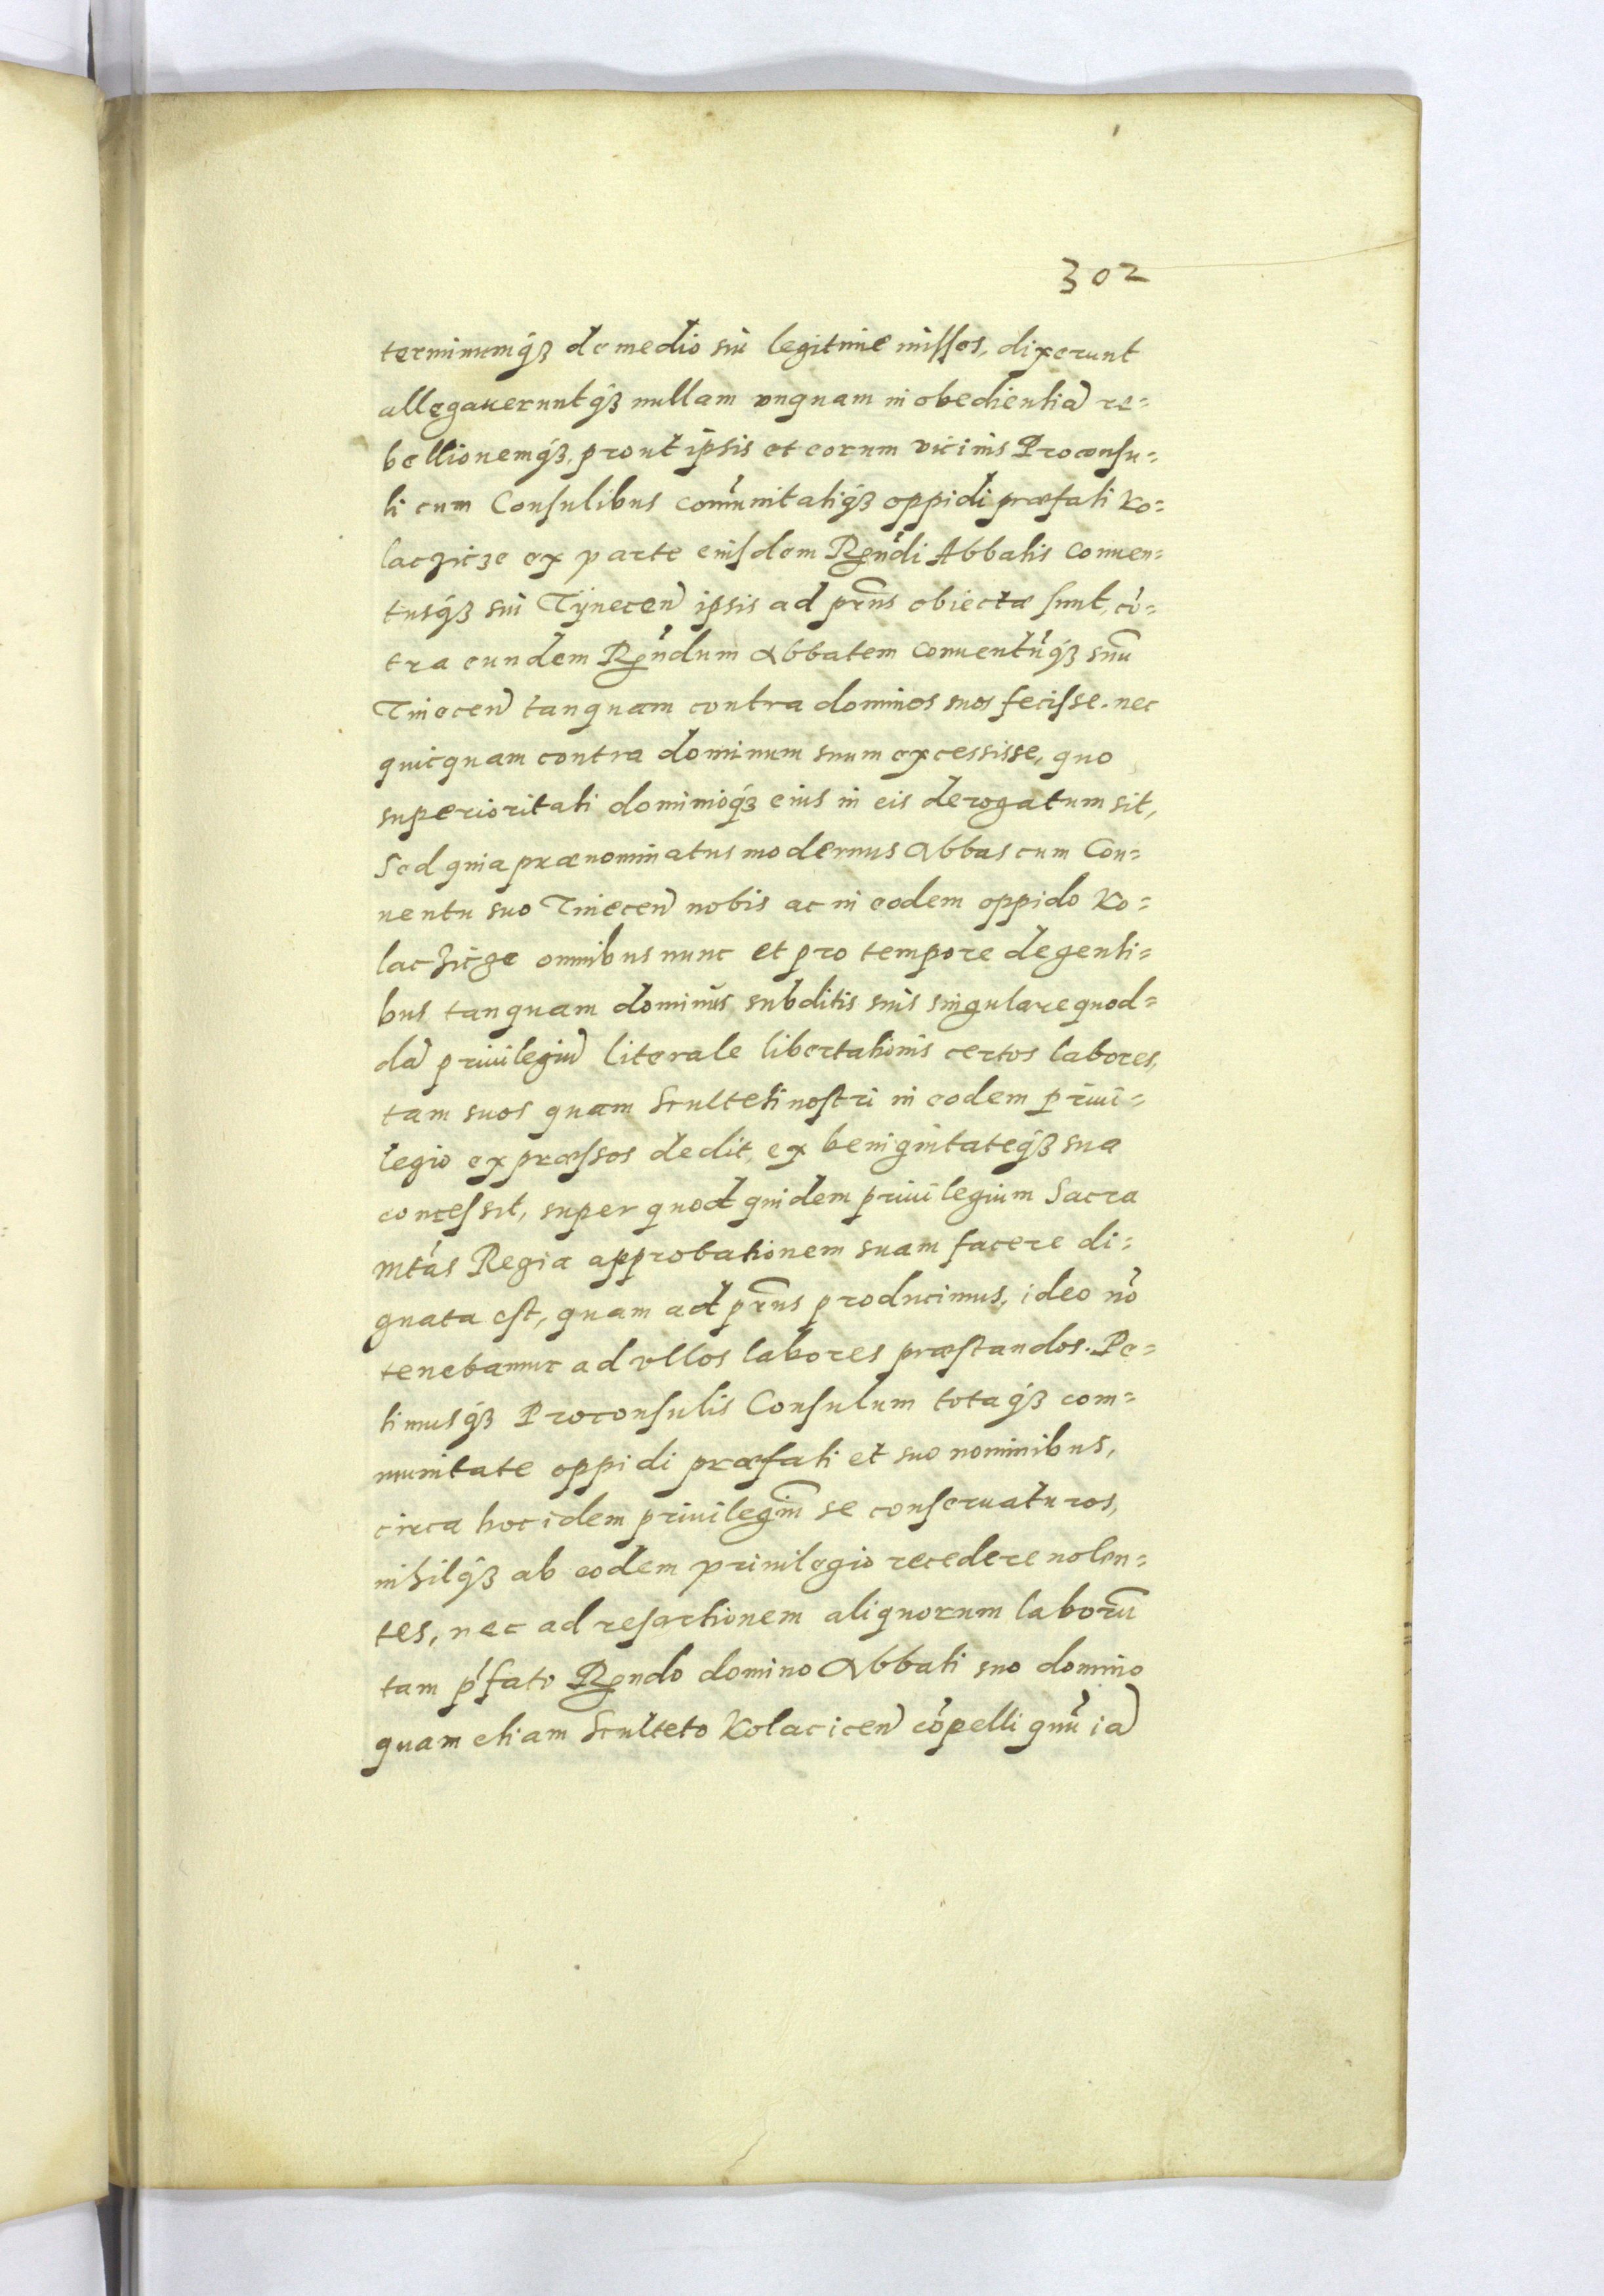 302
terminumq́ꝫ de medio sui legitime missos, dixerunt
allegaueruntq́ꝫ nullam vnquam inobedientiã re=
bellionemq́ꝫ, prout ipsis et eorum vicinis Proconsu=
li cum Consulibus com̃unitatiq́ꝫ oppidi præfati Ko=
laczicze ex parte eiusdem Rñdi Abbatis Conuen=
tusq́ꝫ sui Tÿnecen̄ ipsis ad prñs obiectæ sunt, cõ=
tra eundem Rñdum Abbatem Conuentũq́ꝫ suũ
Tinecen̄ tanquam contra dominos suos fecisse. nec
quicquam contra dominum suum excessisse, quo
superioritati dominioq́ꝫ eius in eis derogatum sit,
Sed quia prænominatus modernus Abbas cum Con=
uentu suo Tinecen̄ nobis ac in eodem oppido Ko=
laczicze omnibus nunc et pro tempore degenti=
bus tanquam dominus subditis suis singulare quod=
dã priuilegiũ literale libertationis certos labores,
tam suos quam Sculteti nostri in eodem priui=
legio expræssos dedit, ex benignitateq́ꝫ sua
concessit, super quod quidem priuilegium Sacra
Mtás Regia approbationem suam facere di=
gnata est, quam ad prñs producimus, ideo nõ
tenebamur ad vllos labores præstandos. Pe=
timusq́ꝫ Proconsulis Consulum totaq́ꝫ com=
munitate oppidi præfati et suo nominibus,
circa hoc idem priuilegiũ se conseruaturos,
nihilq́ꝫ ab eodem priuilegio recedere nolen=
tes, nec ad refactionem aliquorum laborũ
tam ṕfato Rndo domino Abbati suo domino
quam etiam Sculteto Kolacicen̄ cõpelli quũ iã